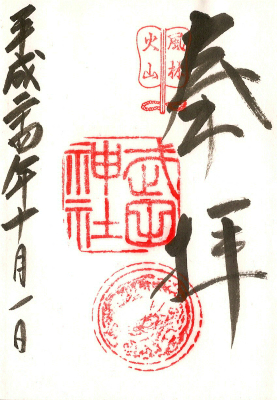 奉拝
風林
火山
武田
神社
平成二四年十月一日